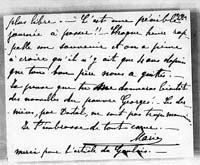 plus libre. — C'est une pénible
journée à passer!! Chaque heure rap-
pelle son souvenir et on a peine
à croire qu'il n'y ait que 8 ans depuis
que mon bon père nous a quittés.
Je pense que tu me donneras bientôt
des nouvelles du pauvre Georges. Ici des
miens, par Dodol, ne sont pas trop
Je t'embrasse de tout cœur.
Marie
merci pour l'article du Gaulois.